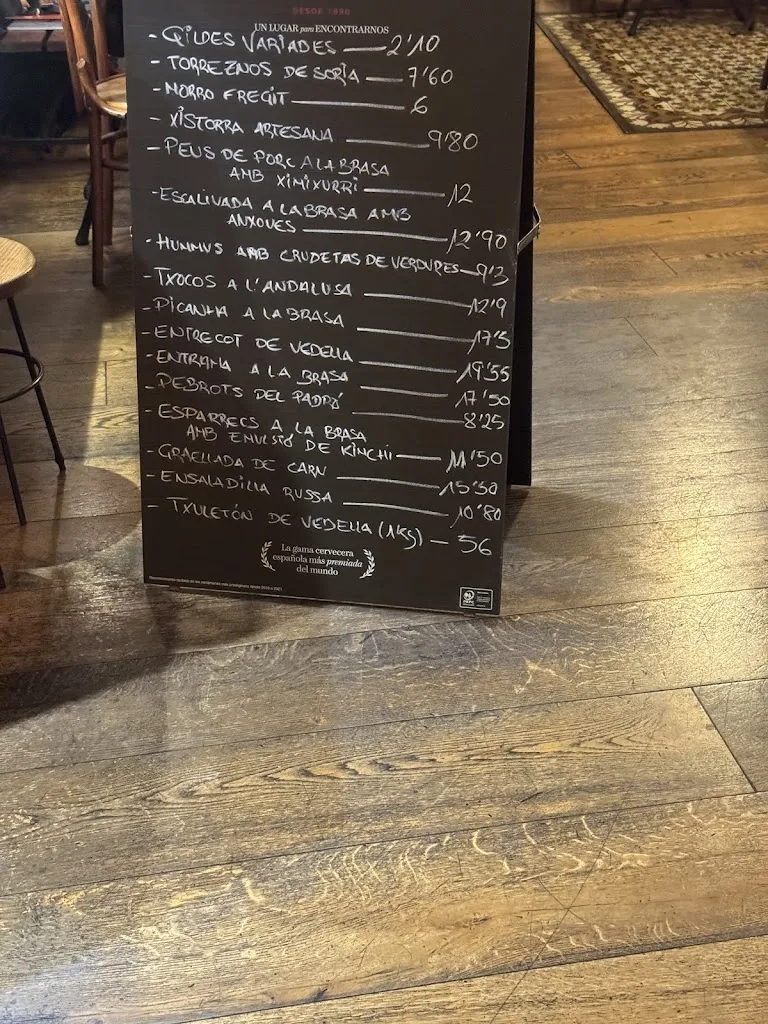 DESDE 1890
UN LUGAR para ENCONTRARNOS
- GILDES VARIADES — 2'10
- TORREZNOS DE SORIA — 7'60
- MORRO FREGIT — 6
- XISTORRA ARTESANA — 9'80
- PEUS DE PORC A LA BRASA
AMB XIMIXURRI — 12
- ESCALIVADA A LA BRASA AMB
ANXOVES — 12'90
- HUMMUS AMB CRUDETAS DE VERDURES — 9'3
- TXOCOS A L'ANDALUSA — 12'9
- PICANHA A LA BRASA — 17'5
- ENTRECOT DE VEDELLA — 19'55
- ENTRAÑA A LA BRASA — 17'50
- PEBROTS DEL PADRÓ — 8'25
- ESPARRECS A LA BRASA
AMB EMULSIÓ DE KINCHI — 11'50
- GRAELLADA DE CARN — 15'30
- ENSALADILLA RUSSA — 10'80
- TXULETÓN DE VEDELLA (1KG) — 56
La gama cervecera
española más premiada
del mundo